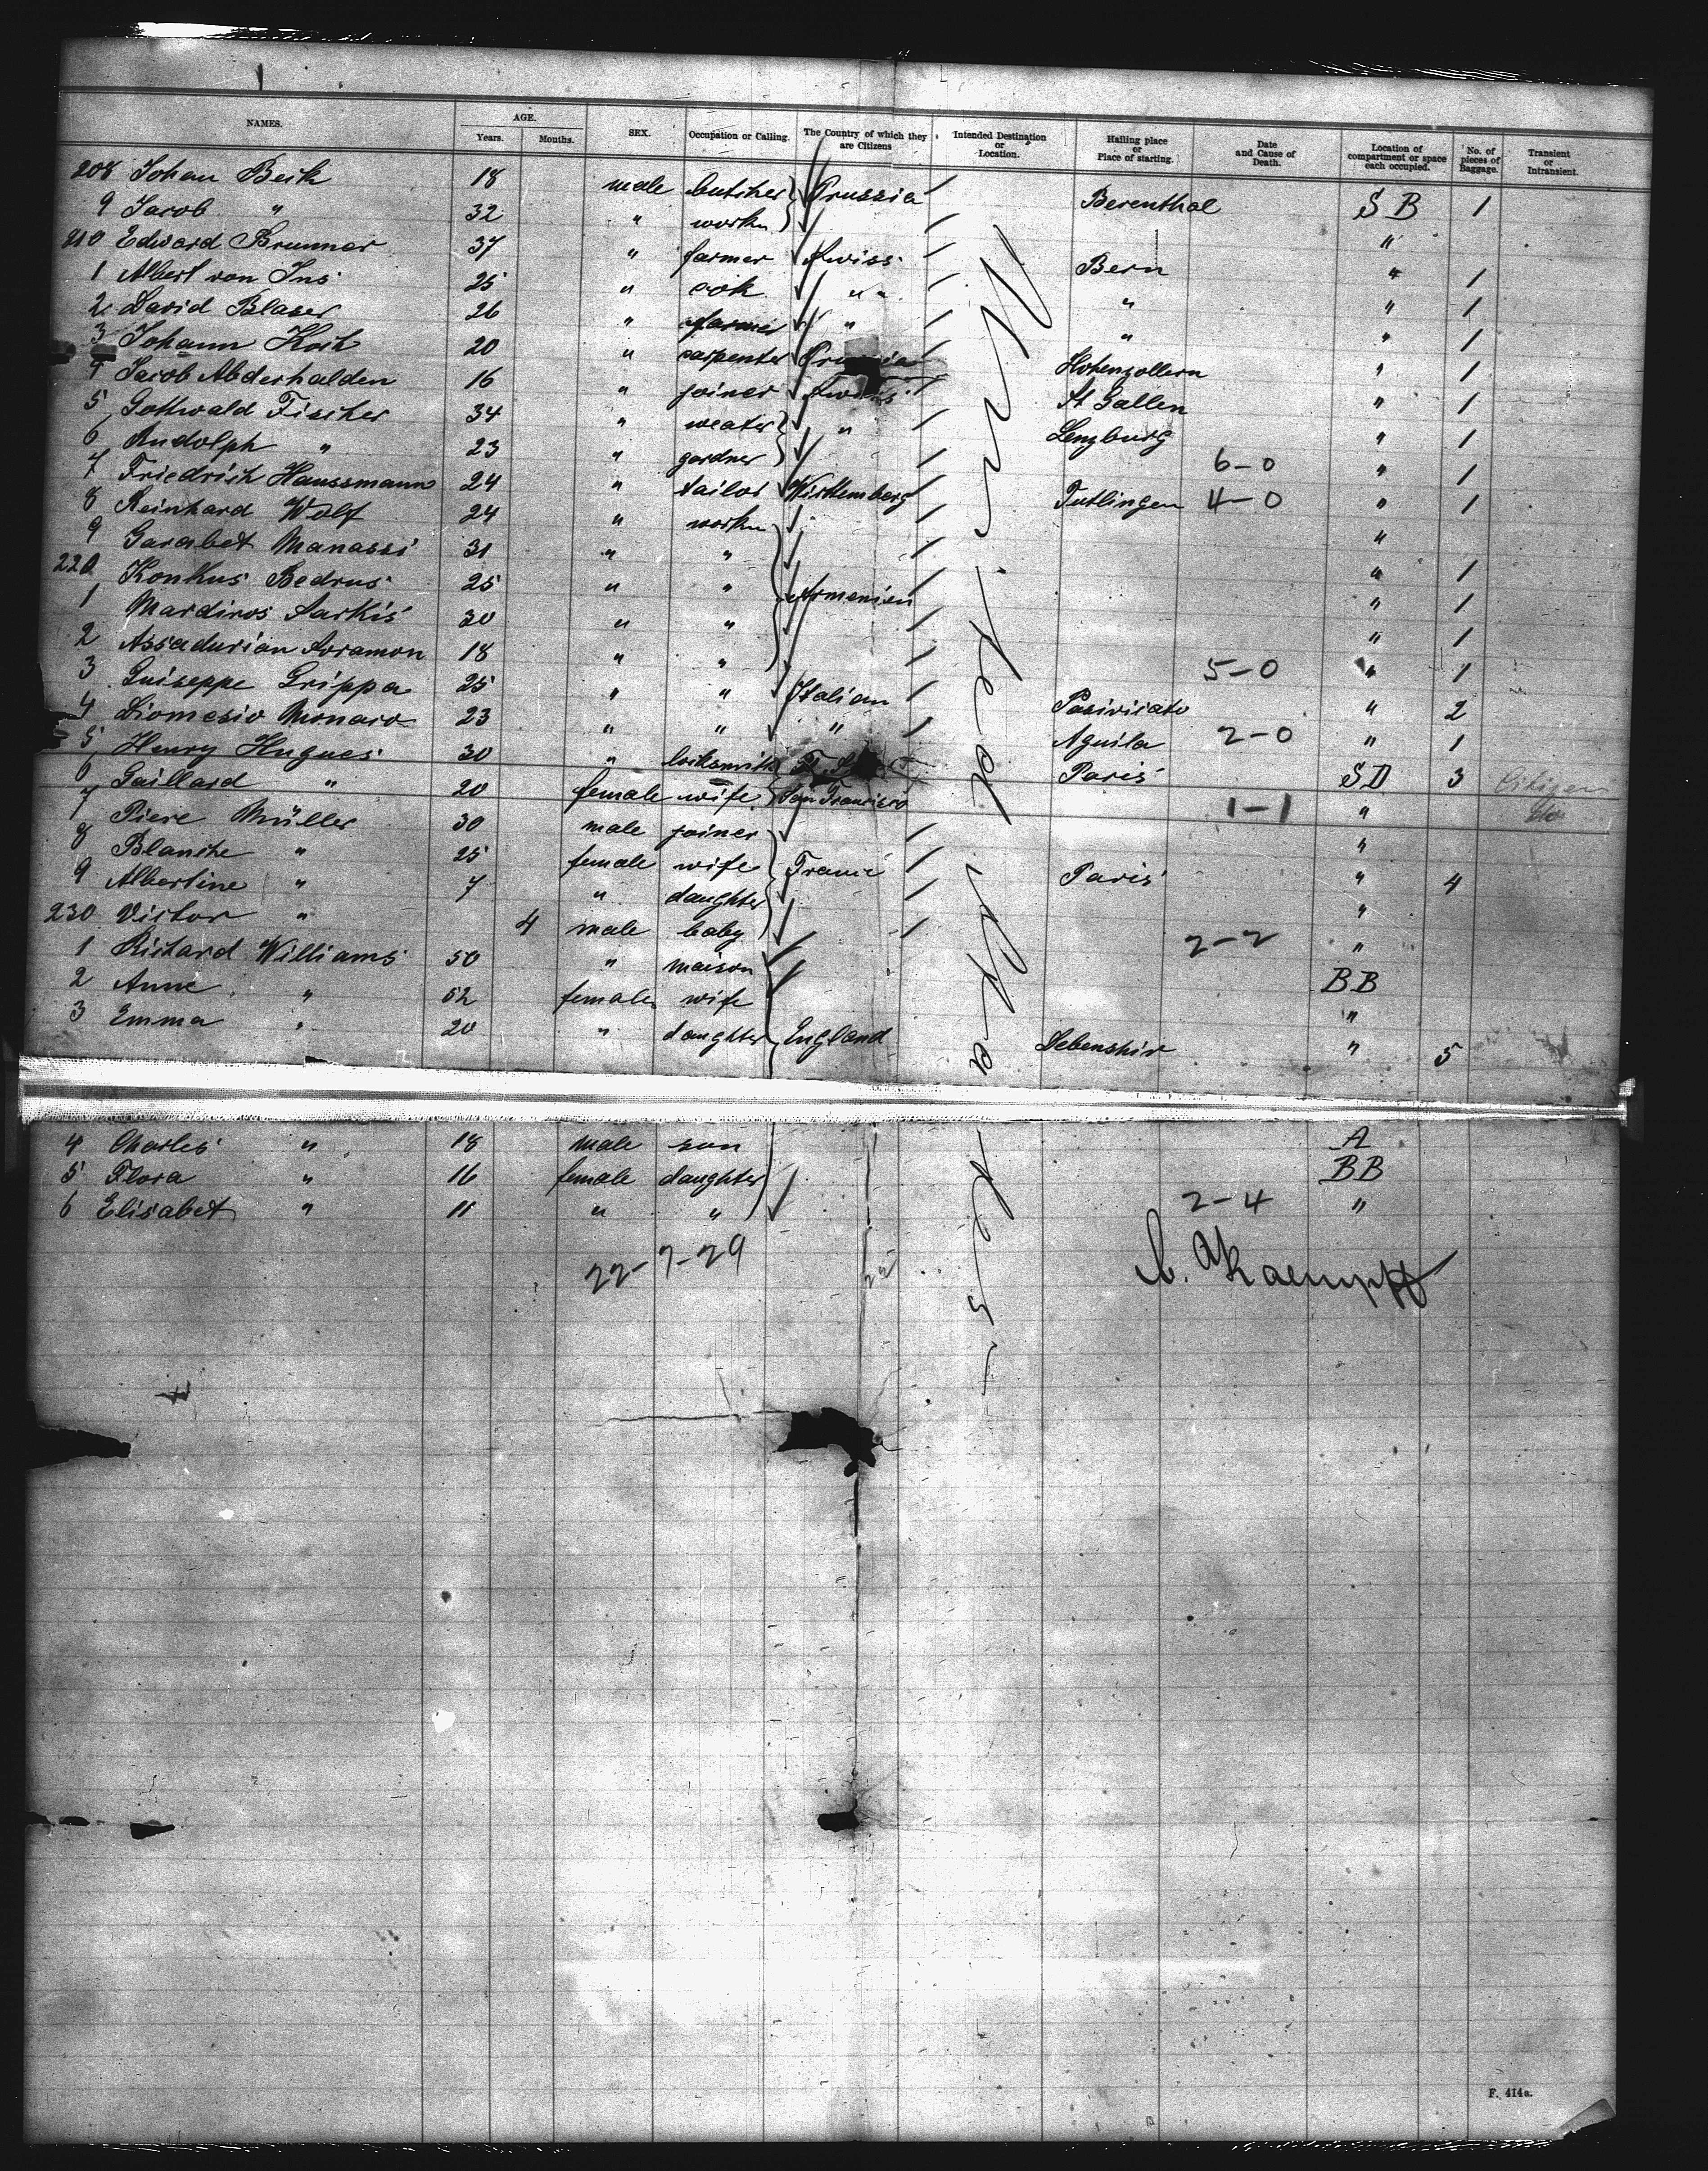 NAMES. AGE. Years. Months. SEX. Occupation or Calling. The Country of which they are Citizens Intended Destination or Location. Hailing place or Place of starting. Date and Cause of Death. Location of compartment or space each occupied. No. of pieces of Baggage. Transient or Intransient.
208 Johan Beik 18 male butcher Prussia Berenthal S B 1
9 Jacob " 32 " workn "
210 Edward Brunner 37 " farmer Swiss Bern " 1
1 Albert von Ins 25 " cok " " " 1
2 David Blaser 26 " farmer " " " 1
3 Johann Koch 20 " carpenter Hohenzollern " 1
4 Jacob Abderhalden 16 " joiner Swiss St Gallen " 1
5 Gottwald Fischer 34 " weater " Lenzburg " 1
6 Rudolph " 23 " gardner 6-0 " 1
7 Friedrich Haussmann 24 " tailor Württemberg Tutlingen 4-0 " 1
8 Reinhard Wolf 24 " workn "
9 Garabet Manassi 31 " " " 1
220 Konkus Bedrus 25 " " Armenien " 1
1 Mardiros Sarkis 30 " " " 1
2 Assadurian Soramon 18 " " 5-0 " 1
3 Guiseppe Grippa 25 " " Italian " 2
4 Diomesio Monaco 23 " " " Aguila 2-0 " 1
5 Henry Hugues 30 " locksmith Paris S D 3 Citizen
6 Gaillard " 20 female wife San Francisco 1-1 " do
7 Piere Müller 30 male joiner "
8 Blanche " 25 female wife France Paris " 4
9 Albertine " 7 " daughter "
230 Victor " 4 male baby 2-2 "
1 Richard Williams 50 " maison BB
2 Anne " 52 female wife "
3 Emma " 20 " daughter England Debenshir " 5
4 Charles " 18 male son A
5 Flora " 16 female daughter BB
6 Elisabet " 11 " " 2-4 "
New York
22-7-29
C. Kaempff
F. 414a.